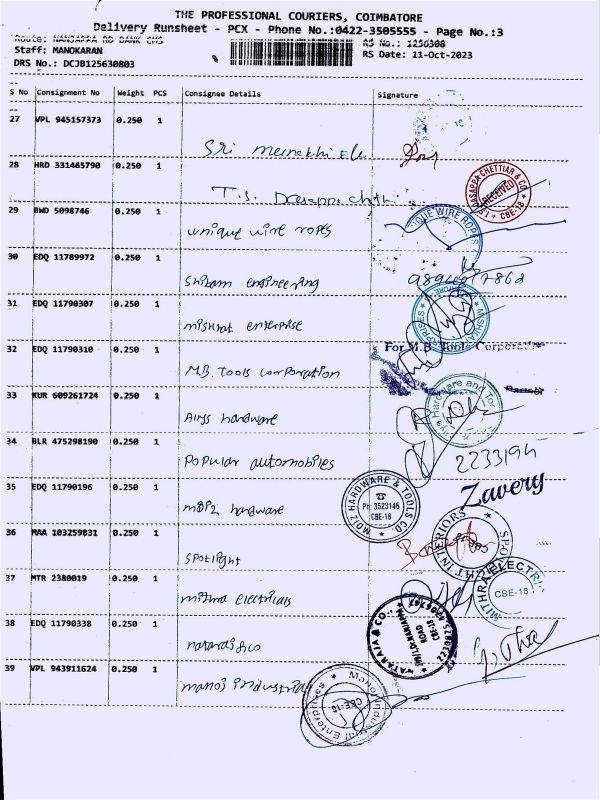 THE PROFESSIONAL COURIERS, COIMBATORE
Delivery Runsheet - PCX - Phone No.:0422-3505555 - Page No.:3
Route: NANJAPPA RD BANK CHS
RS No.: 1256308
Staff: MANOKARAN
RS Date: 11-Oct-2023
DRS No.: DCJB125630803
S No Consignment No Weight PCS Consignee Details Signature
27 VPL 945157373 0.250 1
Sri meenakhi Ele
28 HRD 331465790 0.250 1
T.S. Dasappa chtti
DASAPPA CHETTIAR & CO. RECEIVED CBE-18
29 BWD 5098746 0.250 1
unique wire ropes
UNIQUE WIRE ROPES
30 EDQ 11789972 0.250 1
Shivam engineering
31 EDQ 11790307 0.250 1
mishkat enterprise
32 EDQ 11790310 0.250 1
For M.B. Tools Corporation
M.B. Tools corporation
33 KUR 609261724 0.250 1
Hardware and Too
hardware
34 BLR 475298190 0.250 1
popular automobiles
2233194
35 EDQ 11790196 0.250 1
Zavery
hardware
MOIZ HARDWARE & TOOLS CO. Ph: 3523146 CBE-18
36 MAA 103259831 0.250 1
spotlight
SPOTLIGHT INTERIORS
37 MTR 2380019 0.250 1
mithra electricals
MITHRA ELECTRI CBE-18
38 EDQ 11790338 0.250 1
nataraj &co
NATARAJA & CO. CBE-18
39 VPL 943911624 0.250 1
manoj industrial
Manoj Industrial Enterprises CBE-18